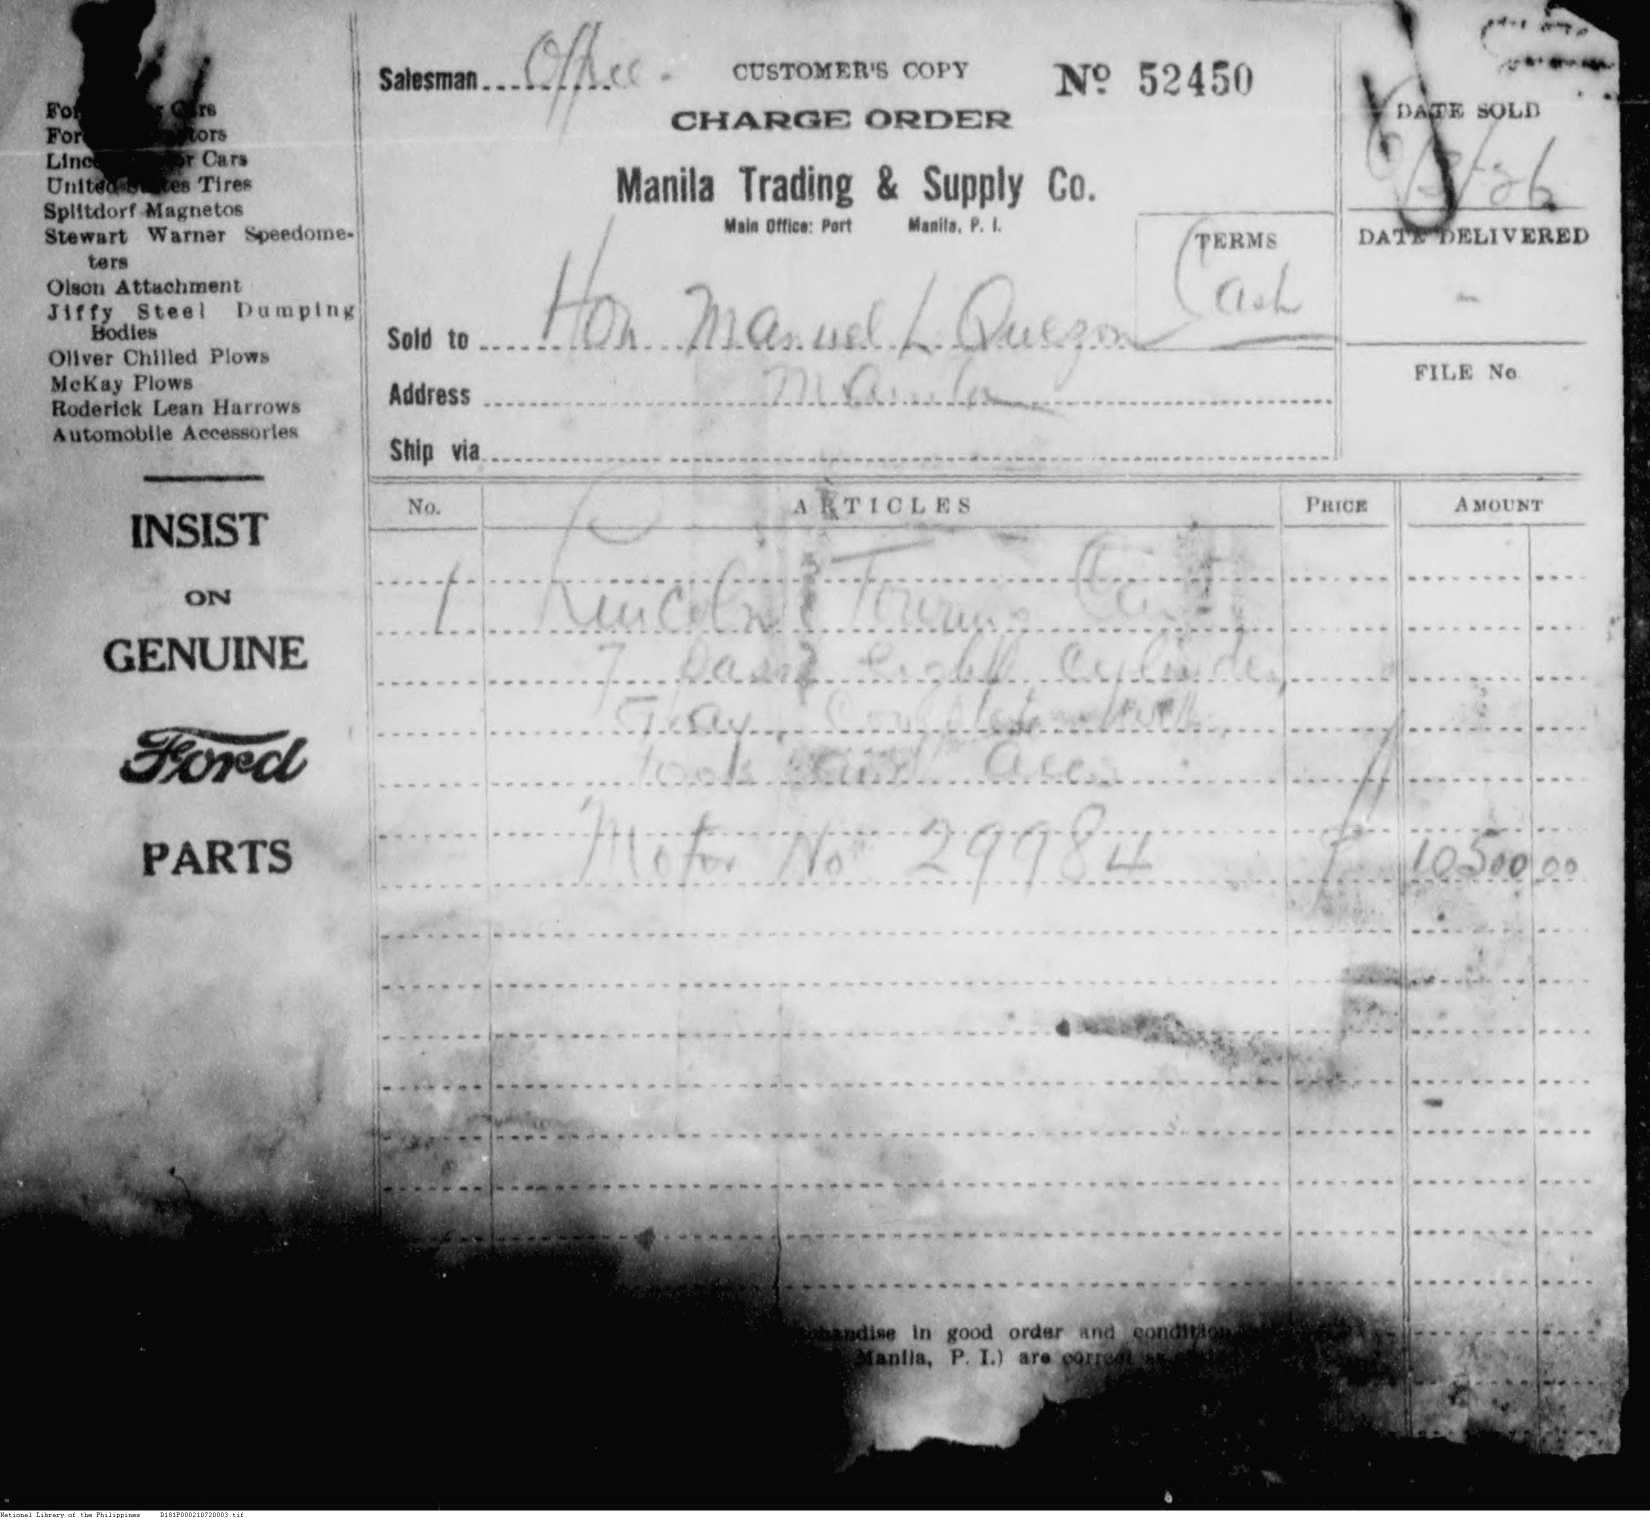 Salesman Office.
CUSTOMER'S COPY
No 52450
CHARGE ORDER
Manila Trading & Supply Co.
Main Office: Port Manila, P. I.
DATE SOLD
DATE DELIVERED
-
FILE No
TERMS
Cash
Sold to Hon Manuel L Quezon
Address Manila
Ship via
Cars
Tires
Splitdorf Magnetos
Stewart Warner Speedome-
ters
Olson Attachment
Jiffy Steel Dumping
Bodies
Oliver Chilled Plows
McKay Plows
Roderick Lean Harrows
Automobile Accessories
INSIST
ON
GENUINE
Ford
PARTS
No. ARTICLES PRICE AMOUNT
1 Lincoln Touring Car
7 pass eight cylinder
Gray, Complete with
tools and acces
Motor No 29984 ₱ 10500 00
in good order and condition
Manila, P. I.) are correct
National Library of the Philippines D181P000210720003.tif